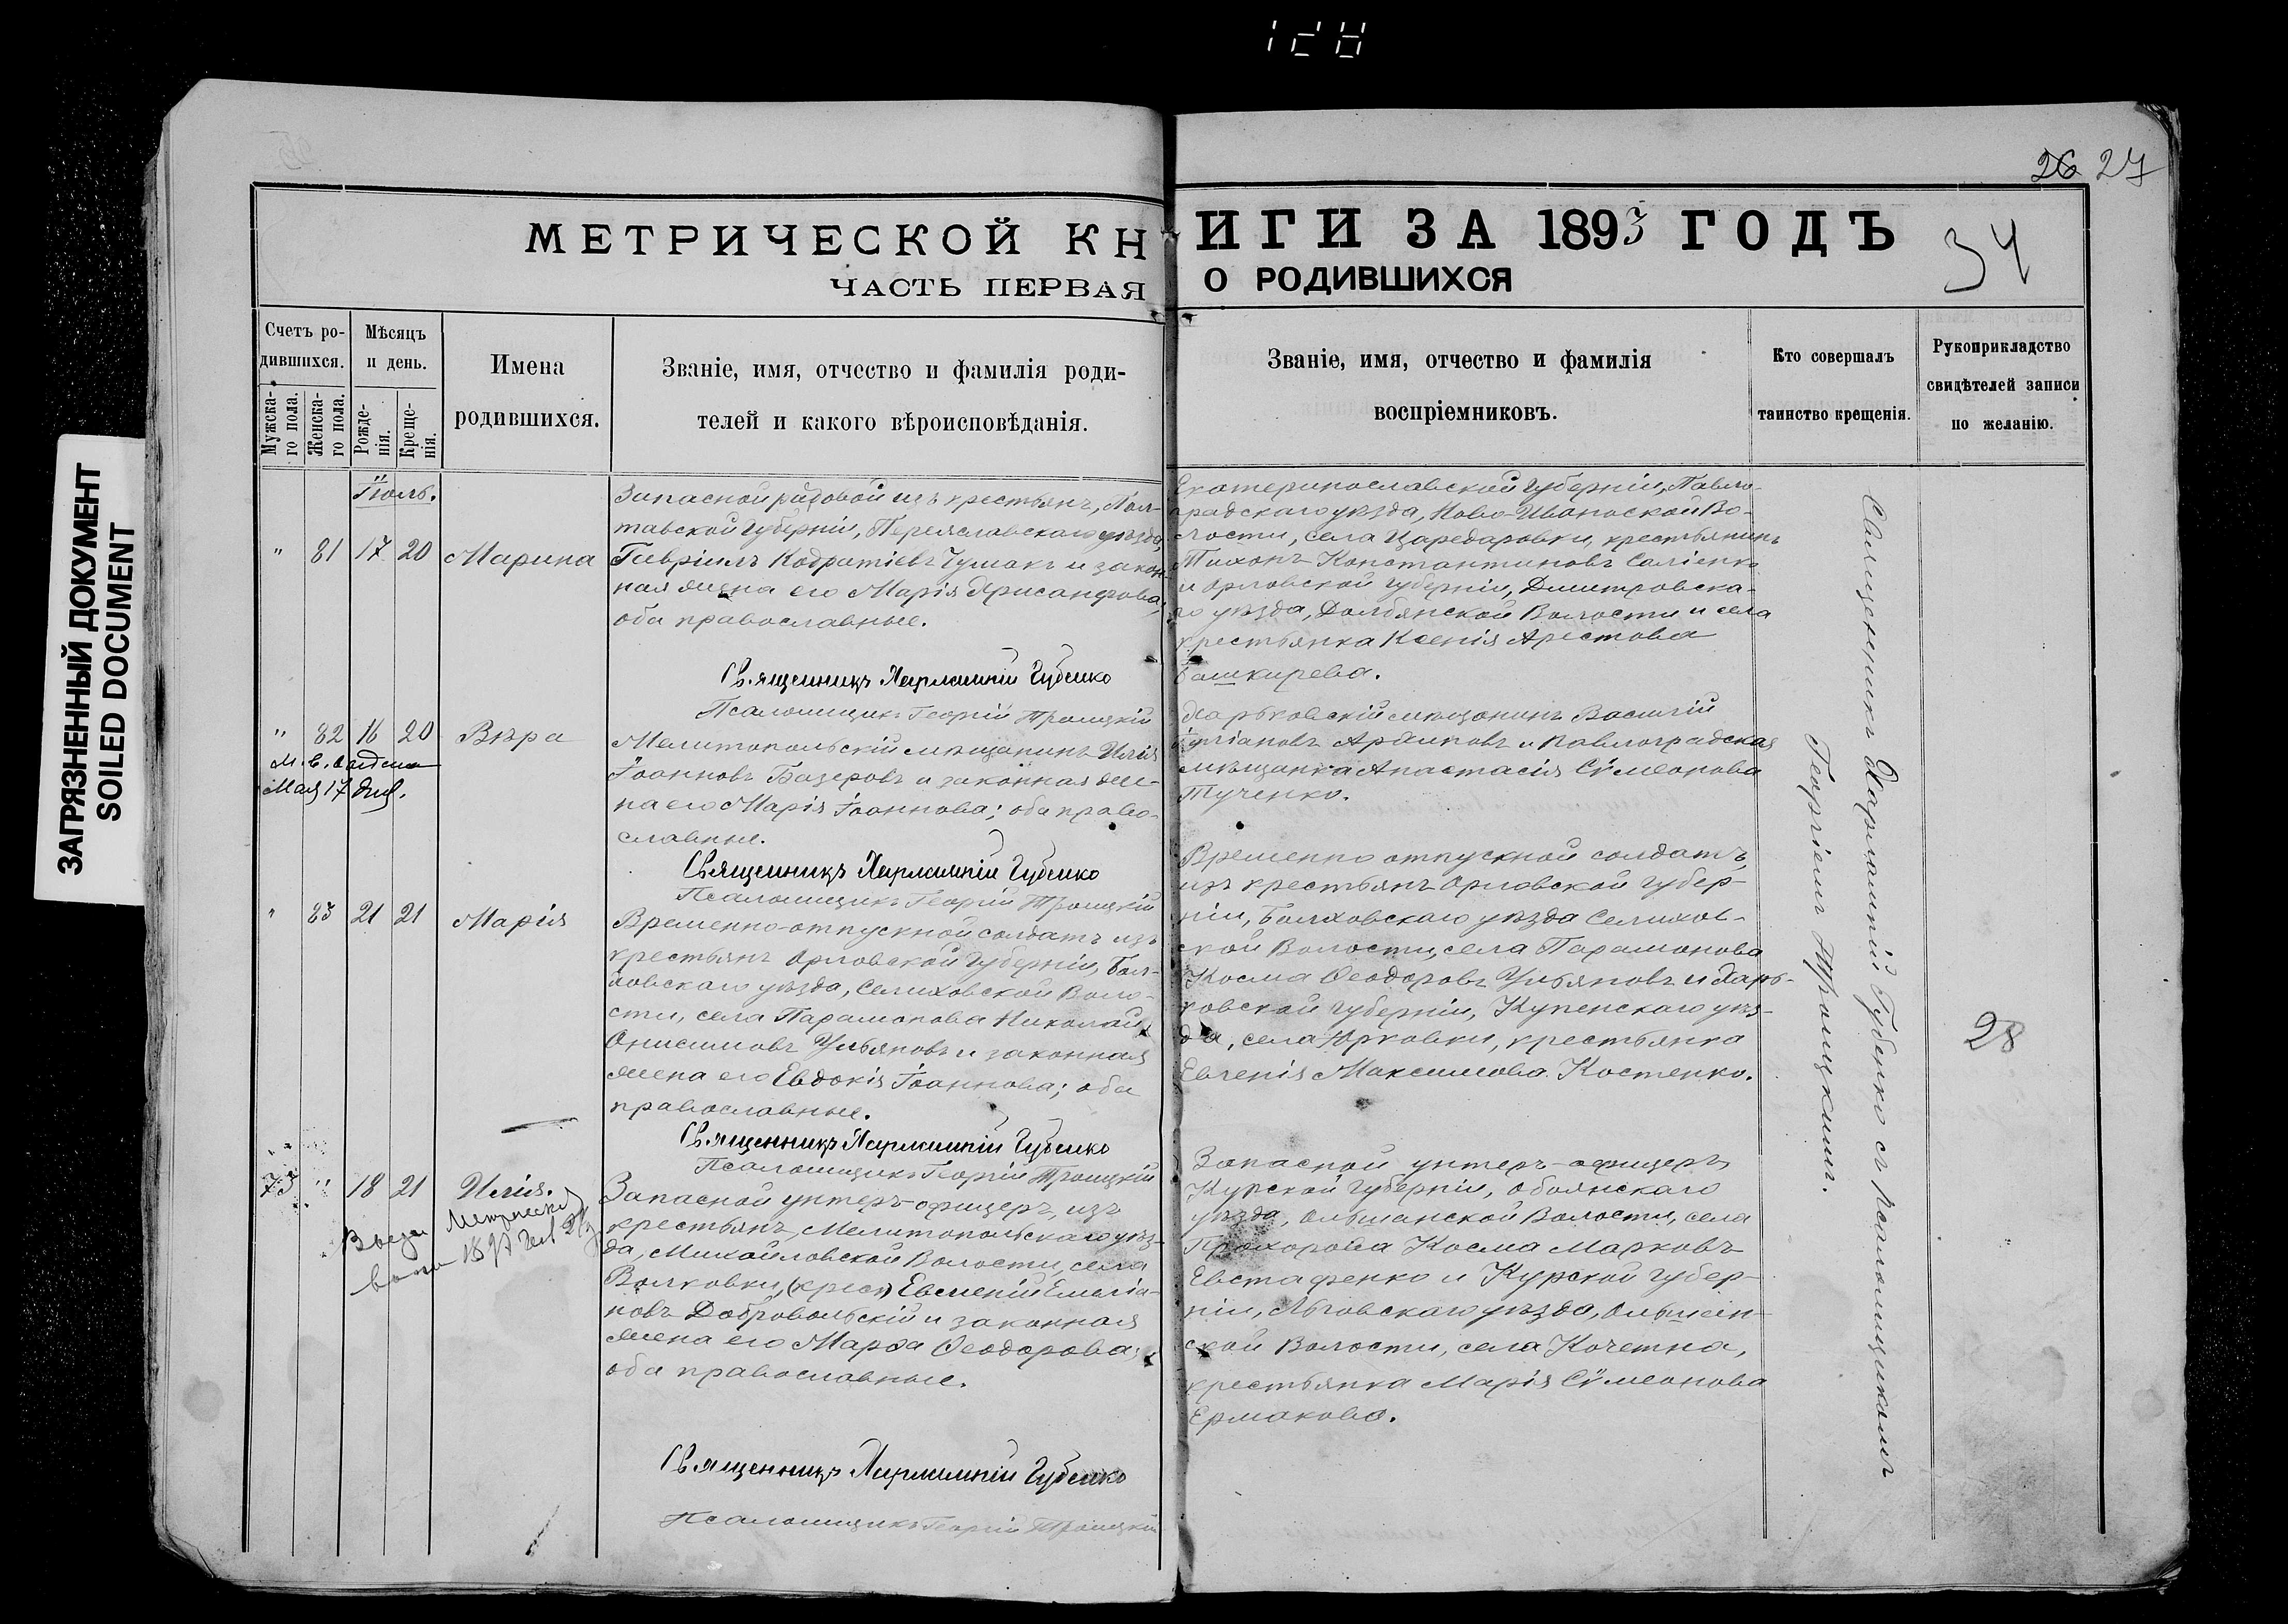 26 27
МЕТРИЧЕСКОЙ КНИГИ ЗА 1893 ГОДЪ
34
ЧАСТЬ ПЕРВАЯ О РОДИВШИХСЯ
ЗАГРЯЗНЕННЫЙ ДОКУМЕНТ
SOILED DOCUMENT
Счетъ ро-
дившихся.
Мужска-
го пола.
Женска-
го пола.
Мѣсяцъ
и день.
Рожде-
нія.
Креще-
нія.
Имена
родившихся.
Званіе, имя, отчество и фамилія роди-
телей и какого вѣроисповѣданія.
Званіе, имя, отчество и фамилія
воспріемниковъ.
Кто совершалъ
таинство крещенія.
Рукоприкладство
свидѣтелей записи
по желанію.
Іюль.
" 81 17 20 Марина
Запасной рядовой изъ крестьянъ, Пол-
тавской Губерніи, Переяславскаго уѣзда,
Гавріилъ Кодратіевъ Чумакъ и закон-
ная жена его Марія Хрисанфова;
оба православные.
Священникъ Харлампій Губенко
Псаломщикъ Георгій Троицкій
Екатеринославской Губерніи, Павло-
градскаго уѣзда, Ново-Ивановской Во-
лости, села Царедаровки, крестьянинъ
Тихонъ Константиновъ Саліенко
и Орловской Губерніи, Дмитровска-
го уѣзда, Долбянской Волости и села
крестьянка Ксенія Арестова
Башкирева.
" 82 16 20 Вѣра
Мая 17 дня.
Мелитопольскій мѣщанинъ Илія
Іоанновъ Базеровъ и законная же-
на его Марія Іоаннова; оба право-
славные.
Священникъ Харлампій Губенко
Псаломщикъ Георгій Троицкій
Харьковскій мѣщанинъ Василій
Іуліановъ Архиповъ и Павлоградская
мѣщанка Анастасія Сѵмеонова
Тученко.
" 83 21 21 Марія
Временно-отпускной солдатъ изъ
крестьянъ Орловской Губерніи, Бол-
ховскаго уѣзда, Селиховской Воло-
сти, села Парамонова Николай
Онисимовъ Ульяновъ и законная
жена его Евдокія Іоаннова; оба
православные.
Священникъ Харлампій Губенко
Псаломщикъ Георгій Троицкій
Временно отпускной солдатъ,
изъ крестьянъ Орловской Губер-
ніи, Болховскаго уѣзда Селихов-
ской Волости, села Парамонова
Косма Ѳеодоровъ Ульяновъ и Харь-
ковской Губерніи, Купенскаго уѣз-
да, села Юрковки, крестьянка
Евгенія Максимова Костенко.
28
73 " 18 21 Илія.
Запасной унтеръ-офицеръ, изъ
крестьянъ, Мелитопольскаго уѣз-
да, Михайловской Волости, села
Волковки, Евменій Емелія-
новъ Добровольскій и законная
жена его Марѳа Ѳеодорова;
оба православные.
Священникъ Харлампій Губенко
Псаломщикъ Георгій Троицкій
Запасной унтеръ-офицеръ
Курской Губерніи, Обоянскаго
уѣзда, Ольшанской Волости, села
Прохорова Косма Марковъ
Евстафенко и Курской Губер-
ніи, Льговскаго уѣзда, Ольшан-
ской Волости, села Кочетна,
крестьянка Марія Сѵмеонова
Ермакова.
Священникъ Харлампій Губенко съ псаломщикомъ
Георгіемъ Троицкимъ.